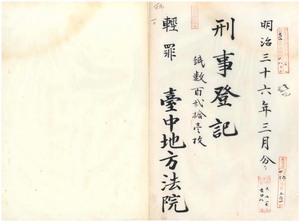 明治三十六年三月分
刑事登記
紙数百弐拾壱枚
輕罪
臺中地方法院